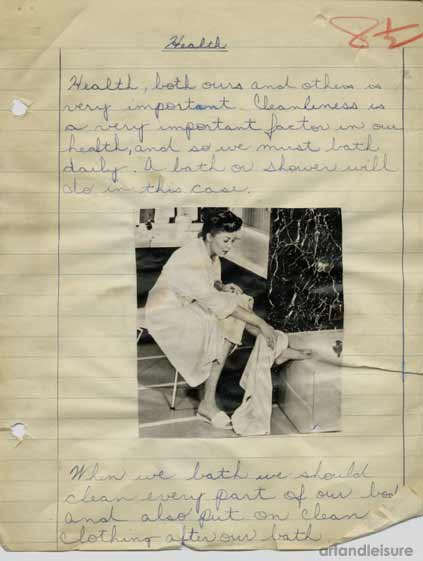 8½
Health
Health, both ours and others is
very important. Cleanliness is
a very important factor in our
health, and so we must bath
daily. A bath or shower will
do in this case.
When we bath we should
clean every part of our bod
and also put on clean
clothing after our bath
artandleisure